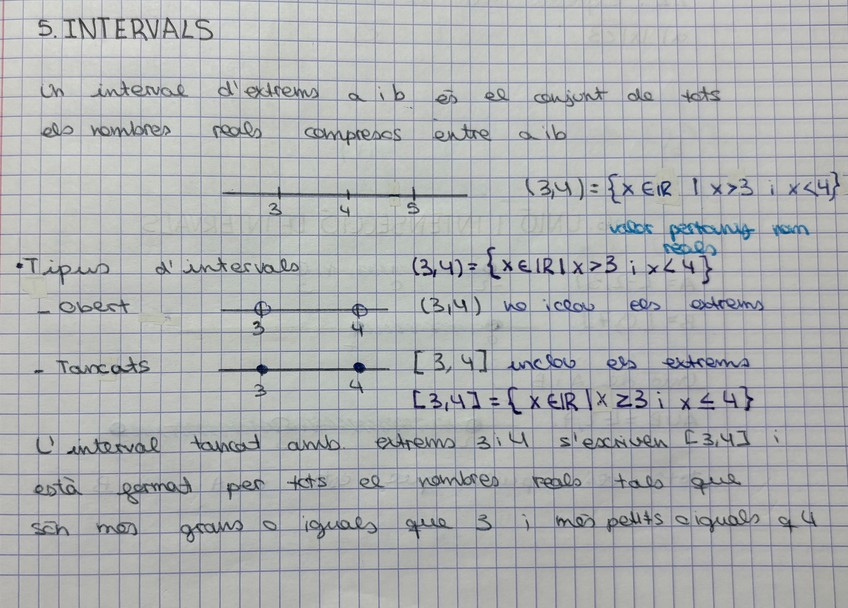 5. INTERVALS
Un interval d'extrems a i b és el conjunt de tots
els nombres reals compresos entre a i b
3 4 5 (3,4) = {x ∈ ℝ | x > 3 i x < 4}
valor pertany nom
reals
• Tipus d'intervals (3,4) = {x ∈ ℝ | x > 3 i x < 4}
- Obert 3 4 (3,4) no iclou els extrems
- Tancats 3 4 [3, 4] inclou els extrems
[3,4] = {x ∈ ℝ | x ≥ 3 i x ≤ 4}
L'interval tancat amb extrems 3 i 4 s'escriven [3,4] i
està format per tots el nombres reals tals que
són mes grans o iguals que 3 i més petits o iguals q 4